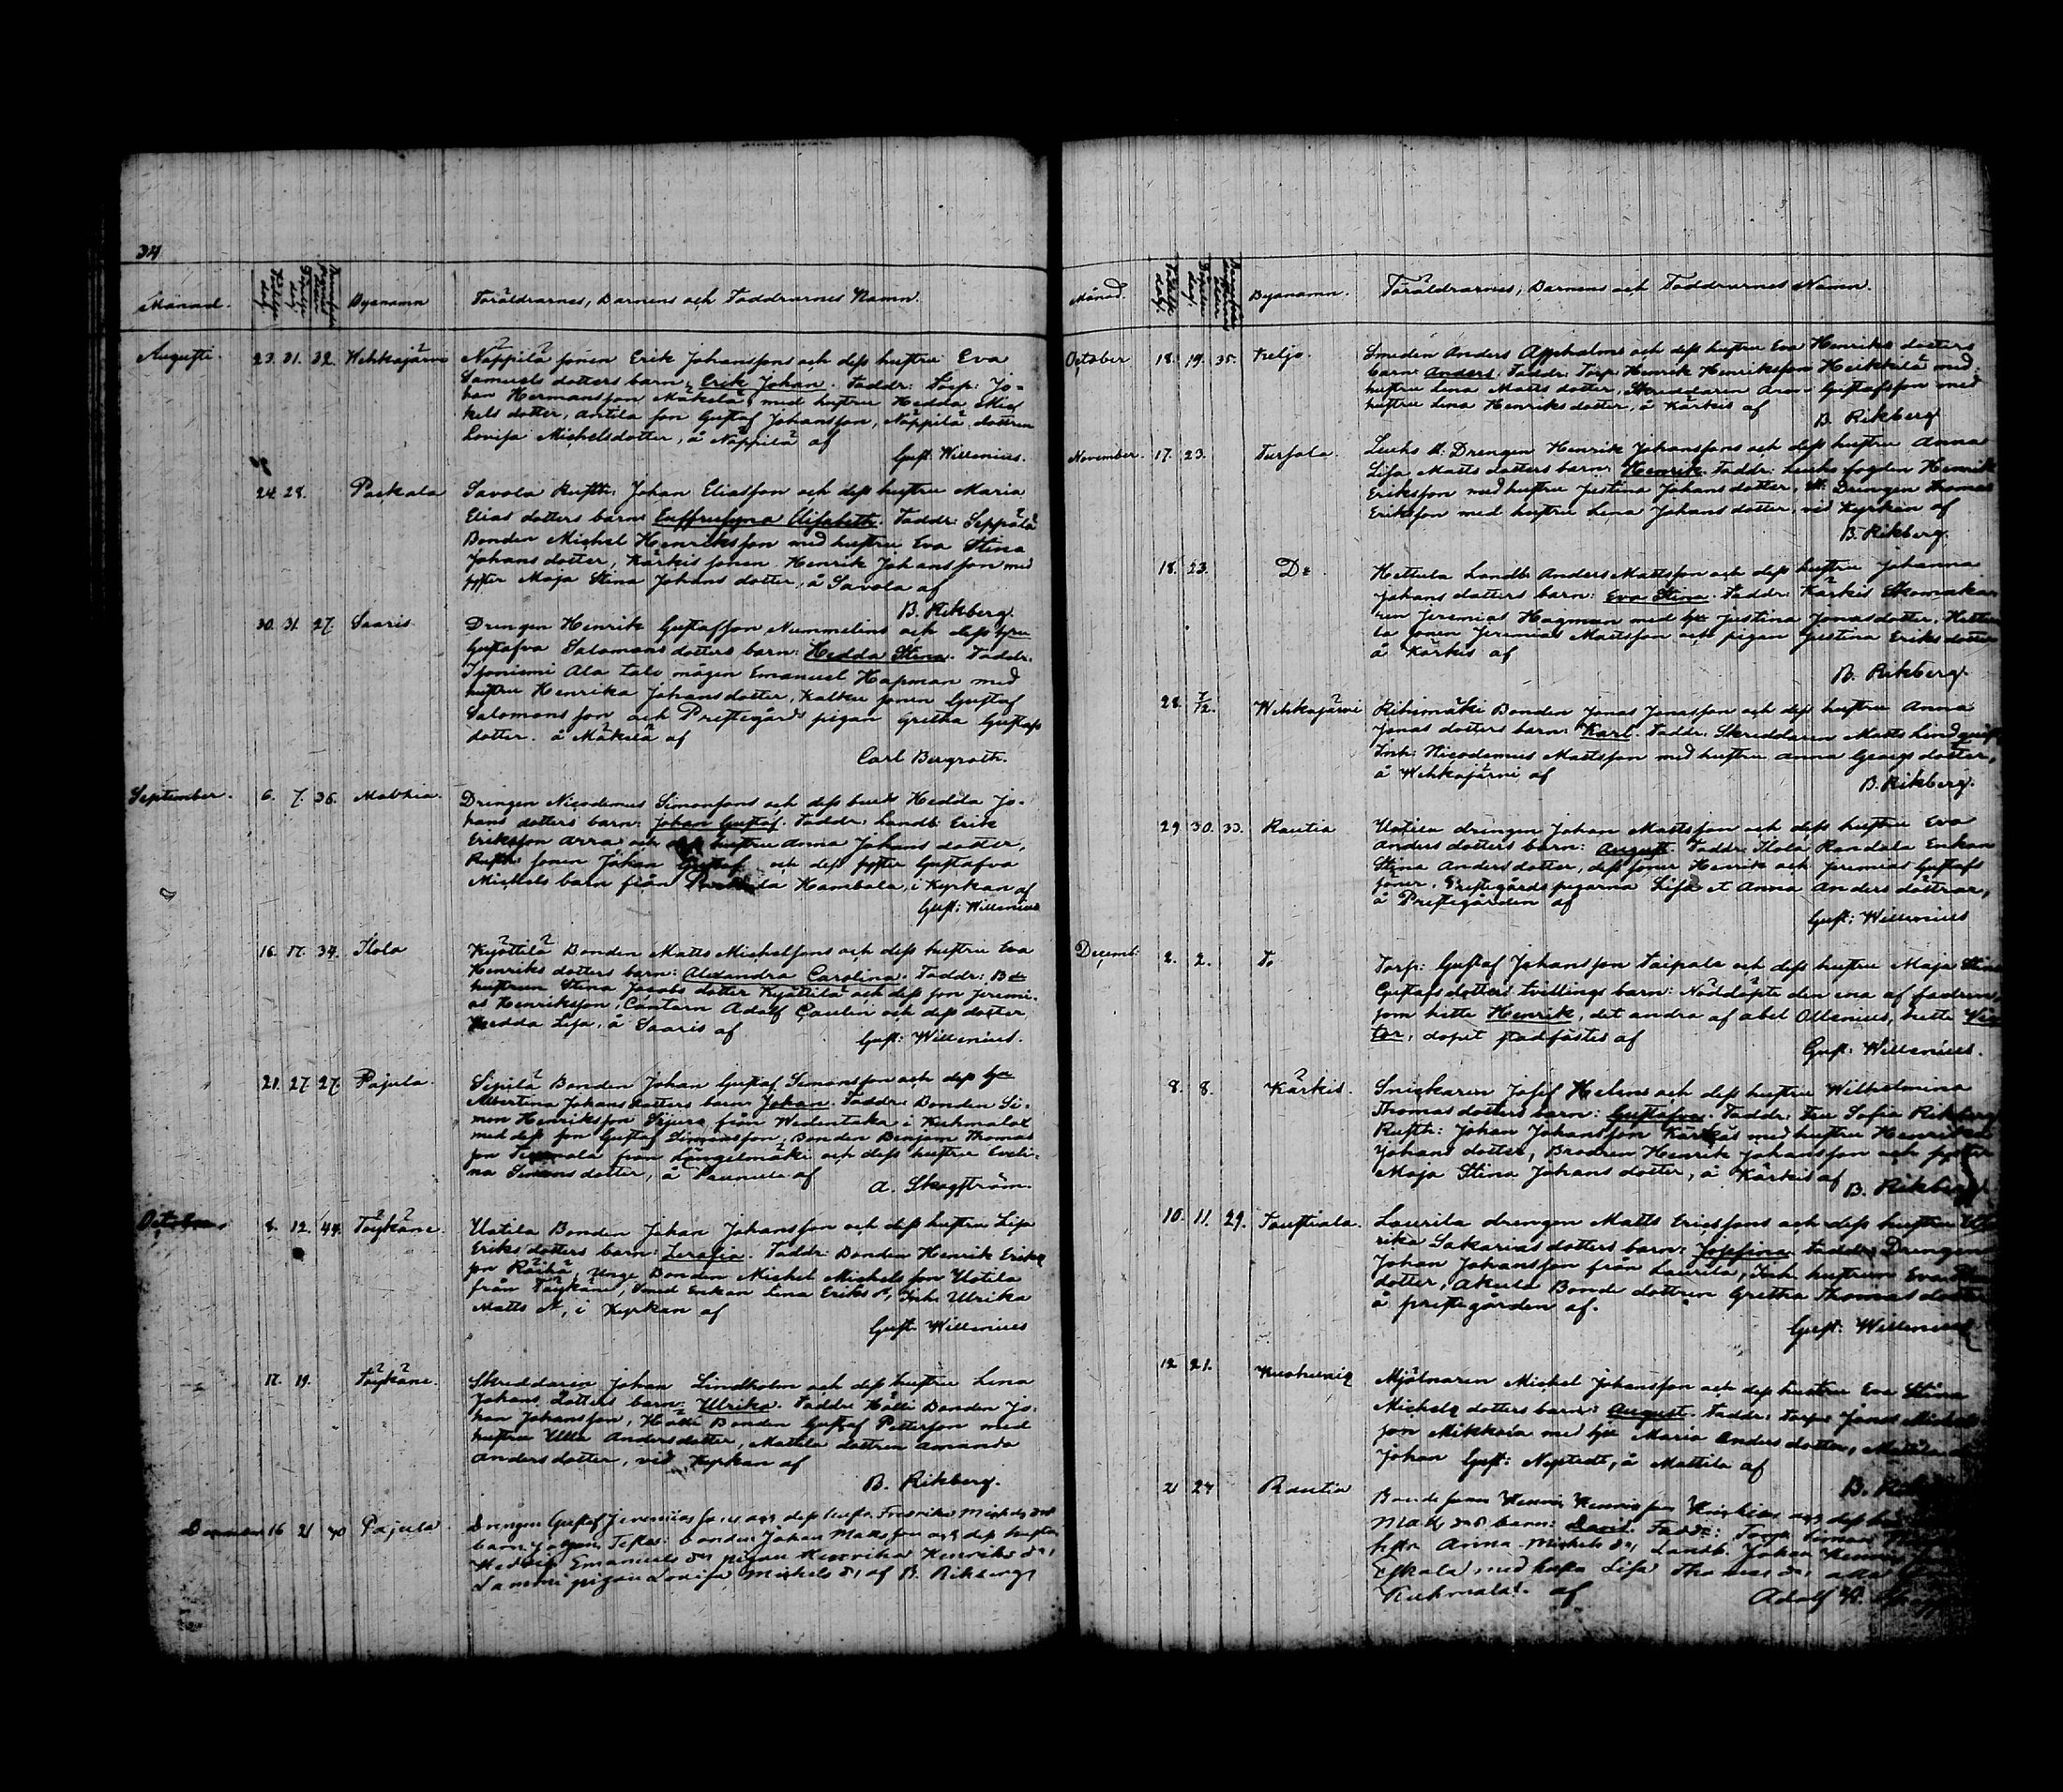 34
Månad.
Byanamn
Föräldrarnes, Barnens och Faddrarnes Namn.
Augusti. 23. 31. 32. Wehkajärvi Näppilä sonen Erik Johanssons och dess hustru Eva
Samuels dotters barn, Erik Johan. Faddr: Torp: Jo-
han Hermansson Mäkelä, med hustru Hedda Mic
kels dotter, Antila son Gustaf Johansson, Näppilä dottren
Lovisa Michelsdotter, å Näppilä af
Gust. Willenius.
24. 28. Packala Savola Rusth: Johan Eliasson och dess hustru Maria
Elias dotters barn: Euffrusyna Elisabeth. Faddr: Seppälä
Bonden Michel Henriksson med hustru Eva Stina
Johans dotter, Kärkis sonen Henrik Johansson med
syster Maja Stina Johans dotter. å Savola af
B. Rikberg.
30. 31. 27. Saaris Drengen Henrik Gustafsson Nummelins och dess hru
Gustafva Salomans dotters barn: Hedda Stina. Faddr.
Isoniemi Ala talo mågen Emanuel Hapman med
hustru Henrika Johansdotter, Kalku sonen Gustaf
Salomonsson och Prestegårds pigan Gretha Gustafs
dotter. å Mäkelä af
Carl Bergroth.
September. 6. 7. 36. Mälkia Drengen Nicodemus Simonsons och dess hustr Hedda Jo-
hans dotters barn: Johan Gustaf. Faddr: Landb Erik
Eriksson Arra och hustru Anna Johans dotter,
Rusth: sonen Johan Gustaf och dess syster Gustafva
Michels barn från Hambala, i Kyrkan af
Gust: Willenius
16. 17. 34. Ilola Kyöttilä Bonden Matts Michelssons och dess hustru Eva
Henriks dotters barn: Alexandra Carolina. Faddr: Bde
hustrun Stina Jacobs dotter Kyöttilä och dess son Jeremi-
as Henriksson, Cantorn Adolf Caulin och dess dotter
Hedda Lisa, å Saaris af
Gust: Willenius.
21. 27. 27. Pajula Sipilä Bonden Johan Gustaf Simonsson och dess hru
Albertina Johans dotters barn Johan. Faddr: Bonden Si-
mon Henriksson Sijura från Wedentaka i Kuhmalax
med dess son Gustaf Simonsson, Bonden Benjam Thomas
son från Längelmäki och dess hustru Eveli-
na Simons dotter, å af
A. Skogström.
October 8. 12. 44. Töykäne. Uotila Bonden Johan Johansson och dess hustru Lisa
Eriks dotters barn: Serafia. Faddr: Bonden Henrik Eriks
son Räihä, Unge Bonden Michel Michels son Uotila
från Töykäne, Smed Enkan Lena Eriks dr, Inh. Ulrika
Matts dr, i Kyrkan af
Gust. Willenius
17. 19. Töykäne. Skreddaren Johan Lindholm och dess hustru Lena
Johans dotters barn: Ulrika. Faddr: Hölli Bonden Jo-
han Johansson, Hölli Bonden Gustaf Petterson med
hustru Ulla Andersdotter, Mattila dottren Amanda
Anders dotter, vid Kyrkan af
B. Rikberg.
December 16 21 40 Pajula Drengen Gustaf Jeremiassons och dess hustr. Fredrika Michels dotr
barn: Johan, Testes: bonden Johan Matsson och dess hustru
Hedvig Emanuels dr pigan Henrika Henriks dr,
Lammi pigan Lovisa Michels dr, af B. Rikberg
Månad.
Byanamn.
Föräldrarnes, Barnens och Faddrarnes Namn.
October 18. 19. 35. Keljo. Smeden Anders Appholms och dess hustru Eva Henriks dotters
barn: Anders. Faddr: Torp Henrik Henriksson Heikkilä med
hustru Lena Matts dotter, Skreddaren Aron Gustafsson med
hustru Lena Henriksdotter, å Kärkis af
B. Rikberg
November. 17. 23. Tursola. Leuhs D. Drengen Henrik Johanssons och dess hustru Anna
Lisa Matts dotters barn: Henrik. Faddr: Leuhs fogden Henrik
Eriksson med hustru Justina Johans dotter, St: Drengen Thomas
Eriksson med hustru Lena Johans dotter, vid Kyrkan af
B. Rikberg.
18. 23. Do Hettula Landb: Anders Mattsson och dess hustru Johanna
Johans dotters barn: Eva Stina. Faddr: Kärkis Skomaka-
ren Jeremias Hagman med hru Justina Jonasdotter, Hettu-
la sonen Jeremias Mattsson och pigan Justina Eriks dotter
å Kärkis af
B. Rikberg.
28. 7/12. Wehkajärvi Rihimäki Bonden Jonas Jonasson och dess hustru Anna
Jonas dotters barn: Karl. Faddr: Skreddaren Matts Lindqvist
Inh: Nicodemus Mattsson med hustru Anna Georgs dotter,
å Wehkajärvi af
B. Rikberg.
29. 30. 33. Rautia Uotila drengen Johan Mattsson och dess hustru Eva
Anders dotters barn: August. Faddr: Ilola Randala Enkan
Stina Anders dotter, dess söner Henrik och Jeremias Gustafs
söner. Prestegårds pigorna Lisa et Anna Anders döttrar,
å Prestegården af
Gust: Willenius
Decemb: 2. 2. Torp: Gustaf Johansson Taipale och dess hustru Maja Stina
Gustafs dotters tvillings barn: Nöddöpte den ena af fadren,
som hette Henrik, det andra af Abel Ollenius, hette Vic
tor, dopet stadfästes af
Gust: Willenius.
8. 8. Kärkis. Snickaren Josef Helins och dess hustru Wilhelmina
Thomas dotters barn: Gustafva. Faddr: Fru Sofia Rikberg
Rusth: Johan Johansson Kärkis med hustru Henrika
Johans dotter, Brodren Henrik Johansson och syster
Maja Stina Johans dotter, å Kärkis af
B. Rikberg.
10. 11. 29. Taustiala. Laurila drengen Matts Ericssons och dess hustru Ul
rika Sakarias dotters barn: Josefina. Faddr: Drengen
Johan Johansson från Laurila, Inh hustrun Eva
dotter, Akula Bonde dottren Gretha Thomas dotter
å prestegården af.
Gust: Willenius
12 21. Mjölnaren Michel Johansson och dess hustru Eva Stina
Michels dotters barn: August. Faddr: Torp: Jonas Michels
son Mikkola med hru Maria Anders dotter, Mattila
Johan Gust: Nystedt, å Mattila af
B.
21 24 Rautia Bonde sonen Henric Henricsson och dess
Matts dotr barn: David. Faddr: Torp:
hustr Anna Michels dr, Landb. Johan Henrics
Eskola, med hustr Lisa Thomas dr,
Kuhmalax. af
Adolf